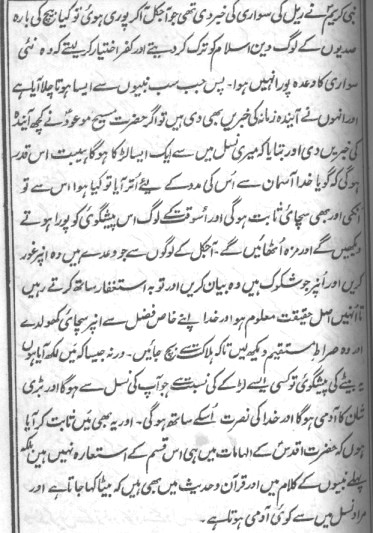 نبی کریم ؐ نے ریل کی سواری کی خبر دی تھی جو آجکل آکر پوری ہوئی تو کیا بیچ کی بارہ
صدیوں کے لوگ دین اسلام کو ترک کر دیتے اور کفر اختیار کر لیتے کہ وہ نئی
سواری کا وعدہ پورا نہیں ہوا۔ پس جب سب نبیوں سے ایسا ہوتا چلا آیا ہے
اور انہوں نے آیندہ زمانہ کی خبریں بھی دی ہیں تو اگر حضرت مسیح موعودؑ نے کچھ آیندہ
کی خبریں دی اور بتایا کہ میری نسل میں سے ایک ایسا لڑکا ہوگا ہیبت اس قدر
ہوگی کہ گویا خدا آسمان سے اُس کی مدد کے لیئے اُتر آیا تو کیا ہوا اس سے تو
انکی اور بھی سچائی ثابت ہوگی اور اسوقت کے لوگ اس پیشگوئی کو پورا ہوتے
دیکھیں گے اور مزہ اُٹھائیں گے۔ آجکل کے لوگوں سے جو وعدے ہیں وہ اُنپر غور
کریں اور اُنپر جو شکوک ہیں وہ بیان کریں اور توبہ استغفار ساتھ کرتے رہیں
تا اُنہیں اصل حقیقت معلوم ہو اور خدا اپنے خاص فضل سے انپر سچائی کھولدے
اور وہ صراط مستقیم دیکھ لیں تاکہ ہلاکت سے بچ جائیں۔ ورنہ جیسا کہ میں لکھ آیا ہوں
یہ بیٹے کی پیشگوئی تو کسی ایسے لڑکے کی نسبت ہے جو آپ کی نسل سے ہوگا اور بڑی
شان کا آدمی ہوگا اور خدا کی نصرت اُسکے ساتھ ہوگی۔ اور یہ بھی میں ثابت کر آیا
ہوں کہ حضرت اقدس کے الہامات میں ہی اس قسم کے استعارہ نہیں ہیں بلکہ
پہلے نبیوں کے کلام میں اور قرآن و حدیث میں بھی ہیں کہ بیٹا کہا جاتا ہے اور
مراد نسل میں سے کوئی آدمی ہوتا ہے۔